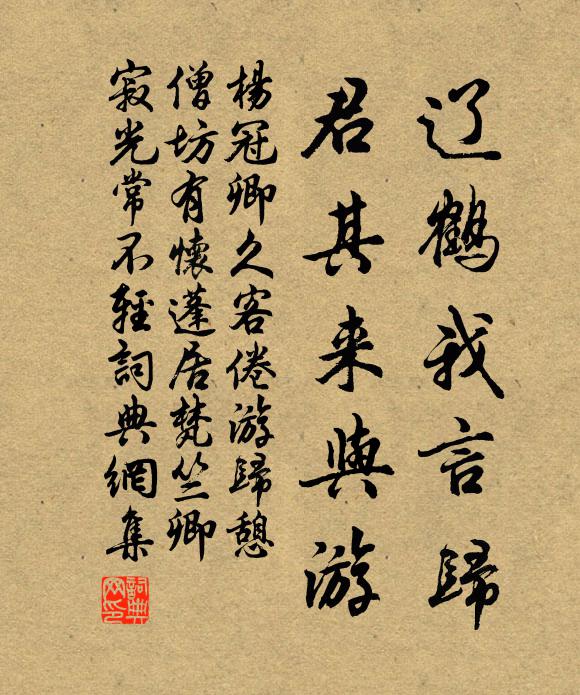 辽鹤我言歸
君其来與游
楊冠卿久客倦游歸憩
僧坊有懷蓬居梵竺卿
寂光常不輕詞典網集
詞典网印